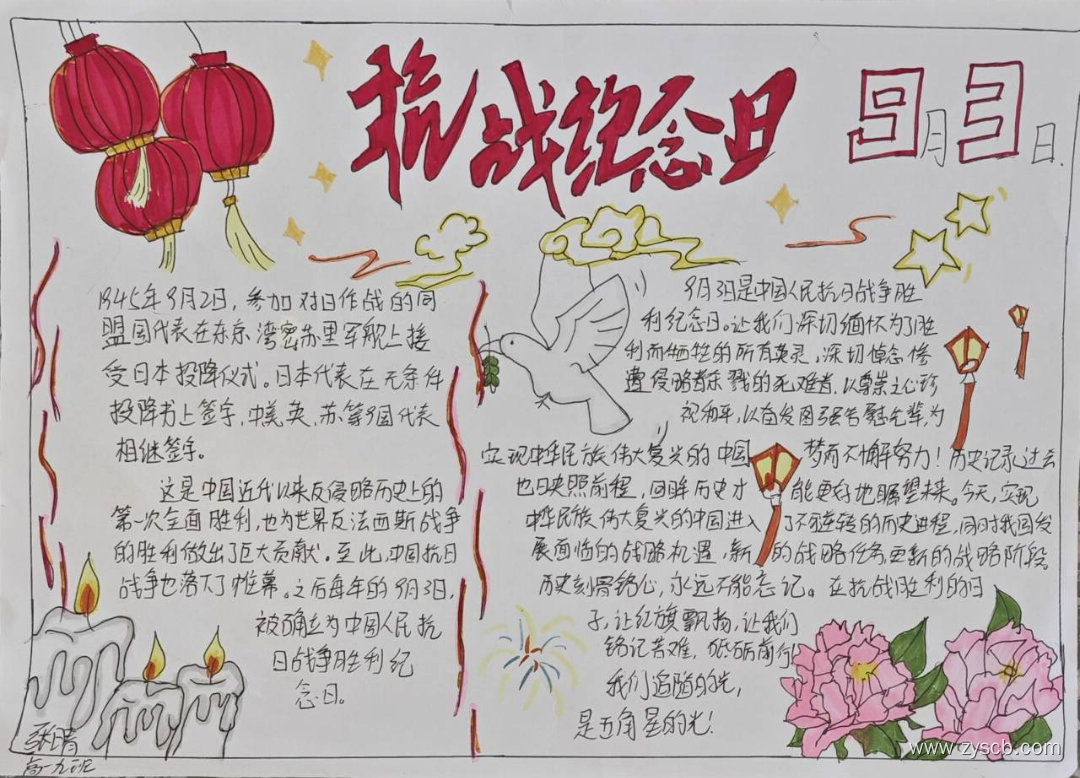 抗战纪念日
9月3日.
1945年9月2日,参加对日作战的同
盟国代表在东京湾密苏里军舰上接
受日本投降仪式。日本代表在无条件
投降书上签字,中、美、英、苏、等9国代表
相继签字。
这是中国近代以来反侵略历史上的
第一次全面胜利,也为世界反法西斯战争
的胜利做出了巨大贡献。至此,中国抗日
战争也落大了帷幕。之后每年的9月3日,
被确立为中国人民抗
日战争胜利纪
念日。
9月3日是中国人民抗日战争胜
利纪念日。让我们深切缅怀为了胜
利而牺牲的所有英灵,深切悼念惨
遭侵略者杀戮的死难者,以尊崇之心珍
祝和平,以奋发图强告慰先辈,为
实现中华民族伟大复兴的中国梦而不懈努力!历史记录过去
也日映照前程,回眸历史才能更好地瞩望未来。今天,实现
中华民族伟大复兴的中国进入了不可逆转的历史进程,同时我国发
展面临的战略机遇,新的战略任务更新的战略阶段
历史刻骨铭心,永远不能忘记。在抗战胜利的日
子,让红旗飘扬,让我们
铭记苦难,砥砺前行
我们追随的光,
是五角星的光!
高一九班
www.zyscb.com